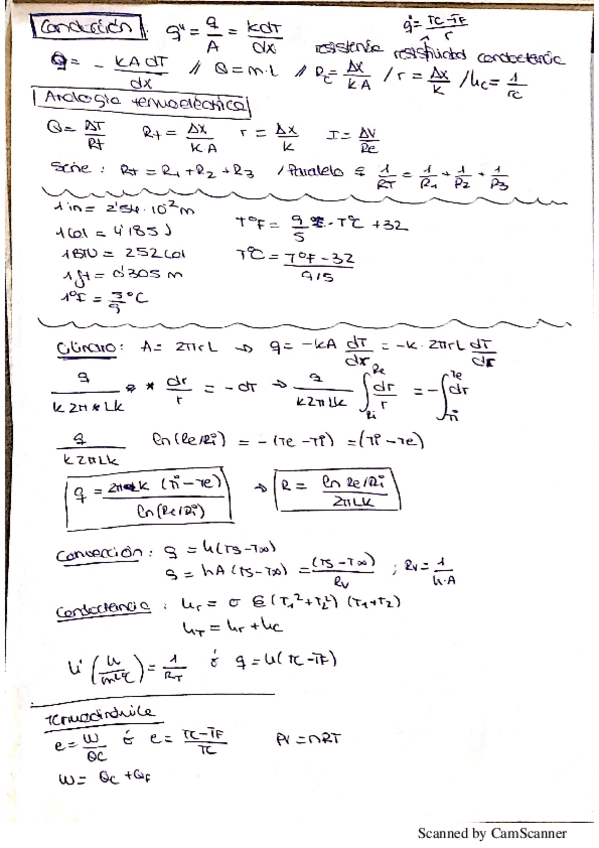 Conducción: q" = q/A = kdT/dx   q̇ = TC-TF/r
resistencia resistividad conductancia
Q = - kAdT/dx // Q = m·L // Rc = Δx/kA / r = Δx/k / hc = 1/rc
Analogía termoeléctrica
Q = ΔT/Rt   Rt = Δx/kA   r = Δx/k   I = ΔV/Re
Serie: RT = R1 + R2 + R3 / Paralelo 1/RT = 1/R1 + 1/R2 + 1/R3
1 in = 2'54·10⁻²m   TºF = 9/5 · TºC + 32
1 cal = 4'185J
1 BTU = 252 cal   TºC = TºF-32/9/5
1 ft = 0'305 m
1ºF = 5/9 ºC
Cilindro: A = 2πrL → q = -kA dT/dr = -k·2πrL dT/dr
dr/r = -dT → q/k2πLk ∫Ri Re dr/r = -∫Ti Te dT
q/k2πLk ln(Re/Ri) = -(Te-Ti) = (Ti-Te)
q = 2πLk (Ti-Te)/ln(Re/Ri) → R = ln Re/Ri/2πLk
Convección: q = h(TS-T∞)
q = hA(TS-T∞) = (TS-T∞)/Rv ; Rv = 1/h·A
Conductancia: hr = σ ε (T1² + T2²) (T1+T2)
hT = hr + hc
(w/m²ºC) = 1/RT ó q = u(TC-TF)
e = W/QC ó e = TC-TF/TC   PV = nRT
W = QC + QF
Scanned by CamScanner